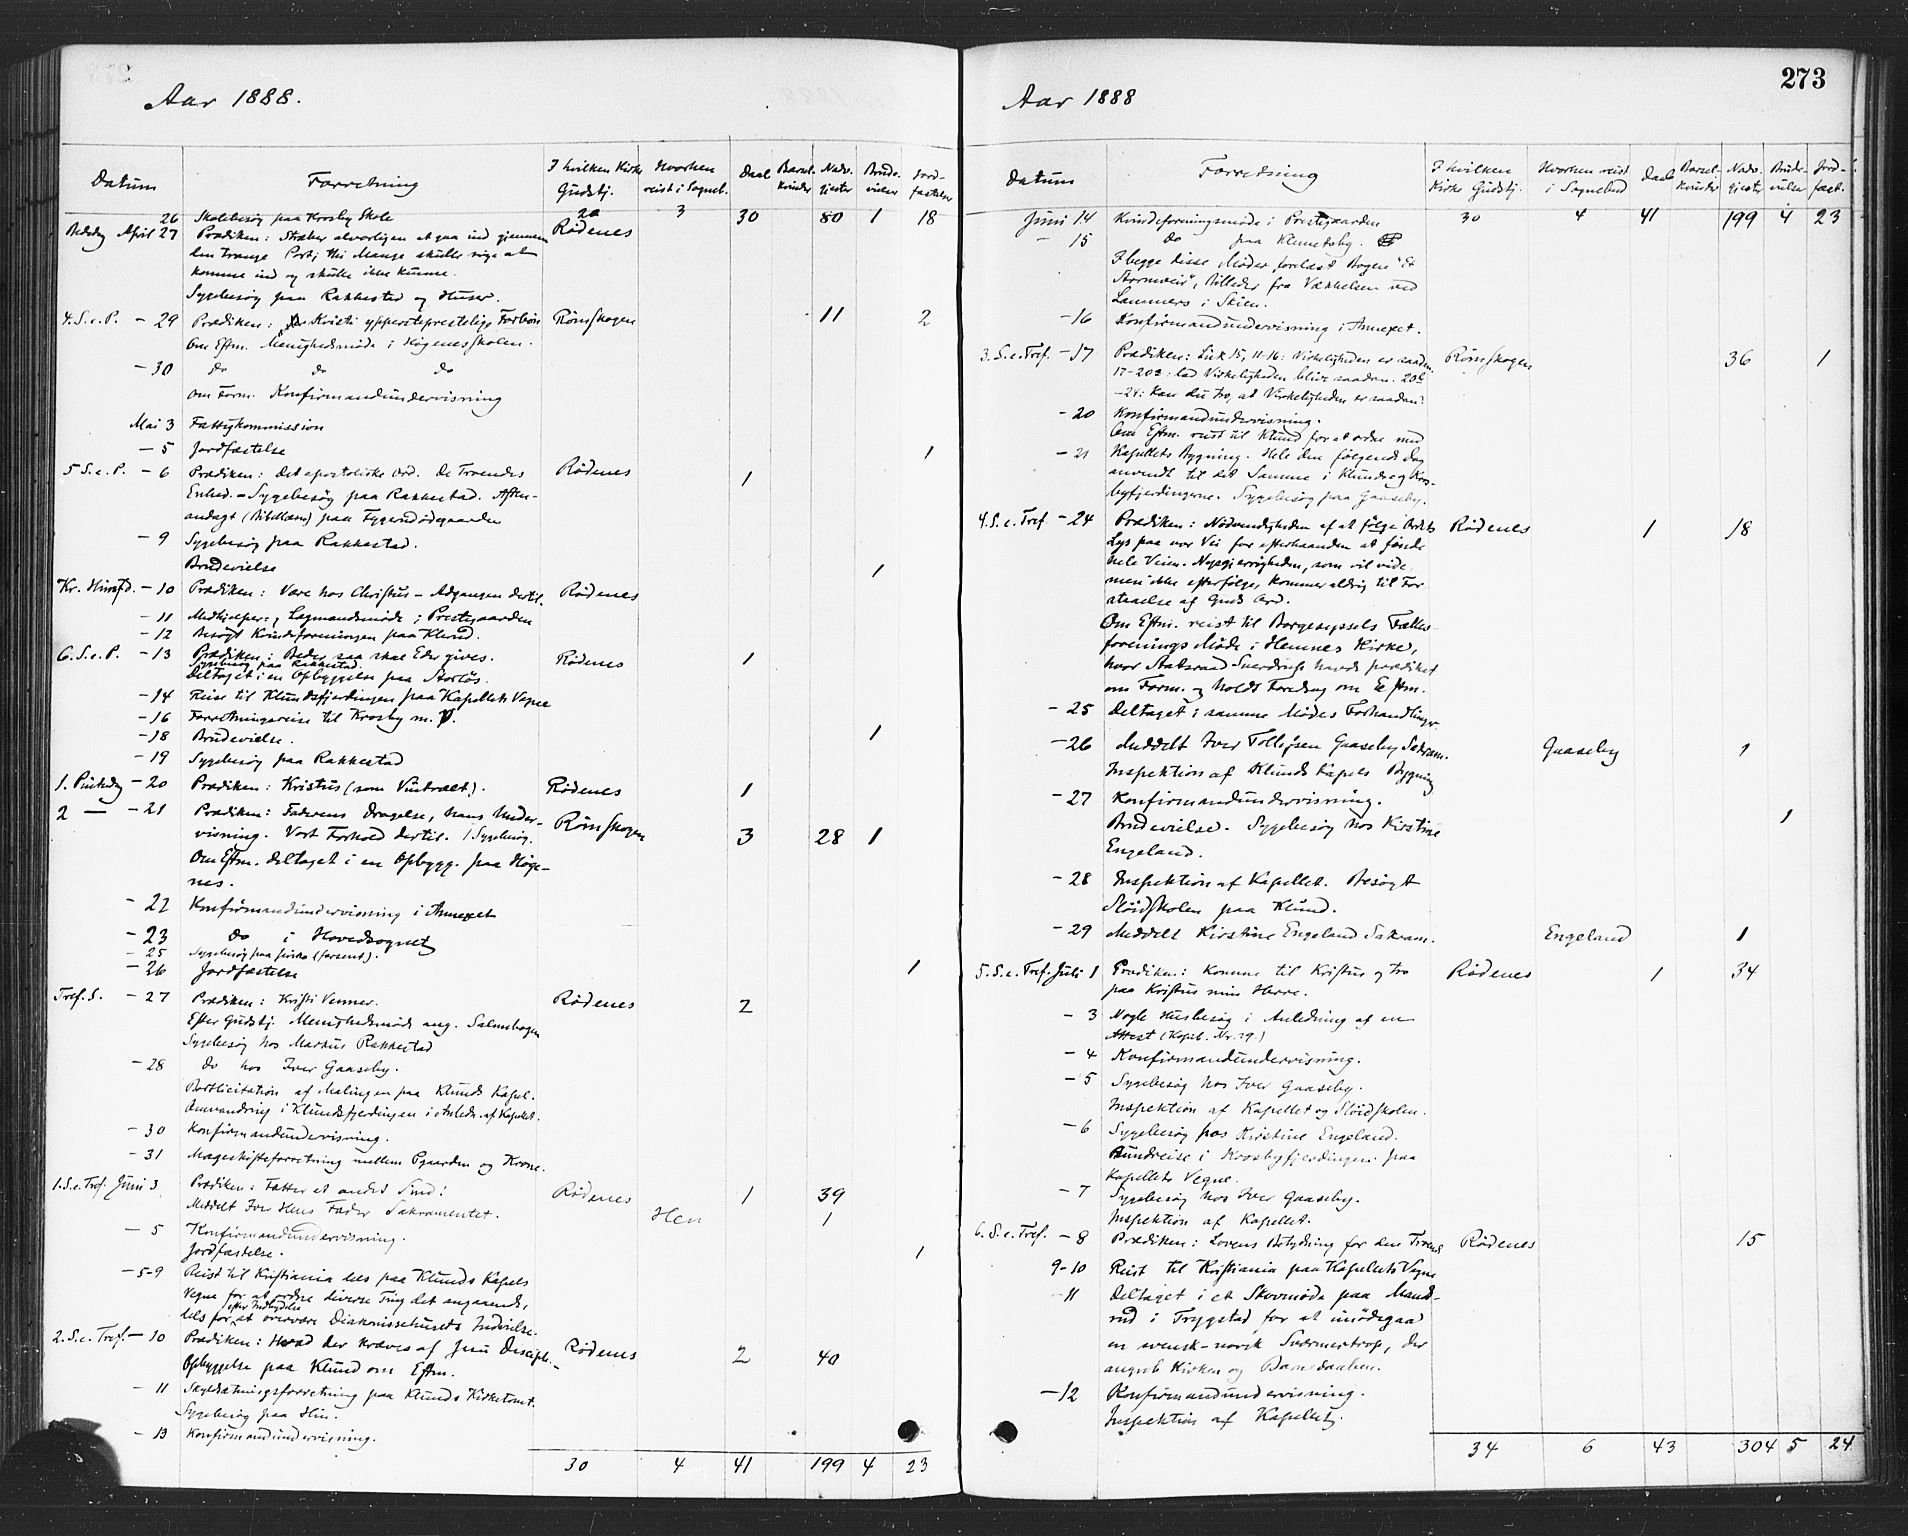 Aar 1888.
Datum
Forretning
I hvilken Kirke Gudstj.
Hvorhen reist i Sogneb.
Daab
Barsel-kvinder
Nadv. gjester
Brude-vielser
Jord-fæstelser
26 Skolebesøg paa Krosby Skole 22 3 30 80 1 18
Bededag April 27 Prædiken: Stræber alvorligen at gaa ind gjennem Rødenes
den trange Port; thi Mange skulle søge at
komme ind og skulle ikke kunne.
Sygebesøg paa Rakkestad og Huser.
4. S. e. P. - 29 Prædiken: Kristi ypperstepresteligs Forbøn Rømskogen 11 2
Om Eftm. Menighedsmøde i Høgenes Skolen.
- 30 do do do
Om Form. Konfirmandundervisning
Mai 3 Fattigkommission
- 5 Jordfæstelse 1
5 S. e. P. - 6 Prædiken: Det apostoliske Ord. De Troendes Rødenes 1
Enhed. - Sygebesøg paa Rakkestad. Aften-
andagt (Bibellæsn) paa
- 9 Sygebesøg paa Rakkestad.
Brudevielse 1
Kr. Himfd. - 10 Prædiken: Være hos Christus - Adgangen dertil. Rødenes
- 11 Medhjælper- og Lagmandsmøde i Prestegaarden
- 12 Besøgt Kvindeforeningen paa Klund.
6. S. e. P. - 13 Prædiken: Beder saa skal Eder gives. Rødenes 1
Sygebesøg paa Rakkestad.
Deltaget i en Opbyggelse paa
- 14 Reise til Klundsfjerdingen paa Kapellets Vegne
- 16 Forretningsreise til Krosby m. V.
- 18 Brudevielse. 1
- 19 Sygebesøg paa Rakkestad
1. Pintsedag - 20 Prædiken: Kristus (som Vintræet). Rødenes 1
2 — - 21 Prædiken: Faderens Dragelse, hans Under-
visning. Vort Forhold dertil. 1 Sygebesøg. Rømskogen 3 28 1
Om Eftm. deltaget i en Opbygg. paa Høge-
nes.
- 22 Konfirmandundervisning i Annexet
- 23 do i Hovedsognet
- 25 Sygebesøg paa
- 26 Jordfæstelse 1
Tref. S. - 27 Prædiken: Kristi Venner. Rødenes 2
Efter Gudstj. Menighedsmøde ang. Salmebogen
Sygebesøg hos Markus Rakkestad
- 28 do hos Iver Gaaseby.
Bortlicitation af Malingen paa Klunds Kapel.
Omvandring i Klundsfjerdingen i Anledn. af Kapellet.
- 30 Konfirmandundervisning.
- 31 Mageskifteforretning mellem Pgaarden og Krone.
1. S. e. Tref. Juni 3 Prædiken: Fatter et andet Sind! Rødenes 1 39
Meddelt Iver Hens Fader Sakramentet. Hen 1
- 5 Konfirmandundervisning.
Jordfæstelse. 1
- 5-9 Reist til Kristiania dels paa Klunds Kapels
Vegne for at ordne diverse Ting det angaaende,
efter Indbydelse
dels for at overvære Diakonissehusets Indvielse.
2. S. e. Tref. - 10 Prædiken: Hvad der kræves af Jesu Disciple. Rødenes 2 40
Opbyggelse paa Klund om Eftm.
- 11 paa Klunds Kirketomt.
Sygebesøg paa Hen.
- 13 Konfirmandundervisning.
30 4 41 199 4 23
273
Aar 1888
Datum
Forretning
I hvilken Kirke Gudstj.
Hvorhen reist i Sognebud
Daab
Barsel-kvinder
Nadv. gjester
Brude-vielse
Jord-fæst.
Juni 14 Kvindeforeningsmøde i Prestegaarden 30 4 41 199 4 23
- 15 do paa Klemetsby.
I begge disse Møder forelæst Bogen "Et
Stormveir", Billeder fra Vækkelsen ved
Lammers i Skien.
- 16 Konfirmandundervisning i Annexet.
3. S. e. Tref. - 17 Prædiken: Luk 15, 11-16: Virkeligheden er saadan. Rømskogen 36 1
17-20a: lad Virkeligheden blive saadan. 20b
-24: kan du tro, at Virkeligheden er saadan?
- 20 Konfirmandundervisning.
Om Eftm. reist til Klund for at ordne med
- 21 Kapellets Bygning. Hele den følgende Dag
anvendt til det Samme i Klunds og Kros-
byfjerdingerne. Sygebesøg paa Gaaseby.
4. S. e. Tref - 24 Prædiken: Nødvendigheden af at følge Ordets Rødenes 1 18
Lys paa vor Vei for efterhaanden at finde
hele Veien. Nysgjerrigheden, som vil vide,
men ikke efterfølge, kommer aldrig til For
staaelse af Guds Ord.
Om Eftm. reist til Borgesyssels Fælles-
forenings Møde i Hemnes Kirke,
hvor Statsraad Sverdrup havde prædiket
om Form. og holdt Foredrag om Eftm.
- 25 Deltaget i samme Mødes Forhandlinger
- 26 Meddelt Iver Tollefsen Gaaseby Sakram. Gaaseby 1
Inspektion af Klunds Kapels Bygning
- 27 Konfirmandundervisning.
Brudevielse. Sygebesøg hos Kirstine 1
Engeland.
- 28 Inspektion af Kapellet. Besøgt
Sløidskolen paa Klund.
- 29 Meddelt Kirstine Engeland Sakram. Engeland 1
5. S. e. Tref. Juli 1 Prædiken: Komme til Kristus og tro Rødenes 1 34
paa Kristus min Herre.
- 3 Nogle Husbesøg i Anledning af en
Attest (Kopib. Nr. 29.)
- 4 Konfirmandundervisning.
- 5 Sygebesøg hos Iver Gaaseby.
Inspektion af Kapellet og Sløidskolen.
- 6 Sygebesøg hos Kirstine Engeland.
Rundreise i Krosbyfjerdingen paa
Kapellets Vegne.
- 7 Sygebesøg hos Iver Gaaseby.
Inspektion af Kapellet.
6. S. e. Tref. - 8 Prædiken: Lovens Betydning for den Troende Rødenes 15
9-10 Reist til Kristiania paa Kapellets Vegne
11 Deltaget i et Skovmøde paa Mand-
rud i Trygstad for at imødegaa
en svensk-norsk Sværmertrop, der
angreb Kirken og Barnedaaben.
- 12 Konfirmandundervisning.
Inspektion af Kapellet.
34 6 43 304 5 24